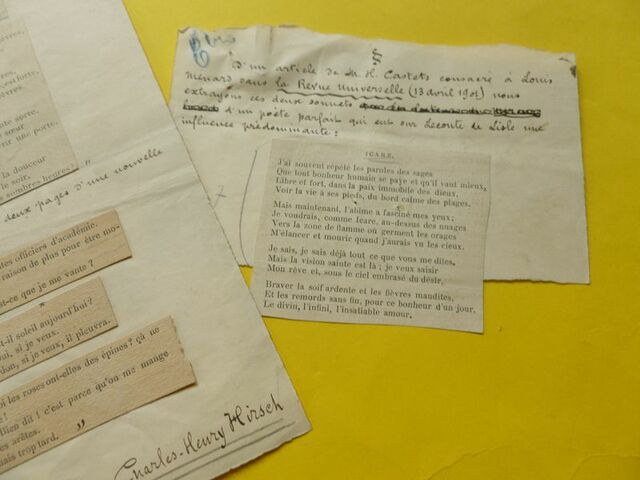 èvres,
est forte,
sorte.
rtir une porte.
la douceur
le soir,
sombres heures) "
deux pages d'une nouvelle
tes officiers d'académie.
raison de plus pour être mo-
st-ce que je me vante ?
*
t-il soleil aujourd'hui?
ui, si je veux.
don, si je veux, il pleuvra.
oi les roses ont-elles des épines? çà ne
e !
Bien dit ! c'est parce qu'on me mange
es arêtes.
nais trop tard. "
Charles-Henry Hirsch
§
D'un article de M. H. Castets consacré à Louis
Ménard dans la Revue Universelle (13 avril 1901) nous
extrayons ces deux sonnets
d'un poète parfait qui eut sur Leconte de Lisle une
influence prédominante :
ICARE.
J'ai souvent répété les paroles des sages
Que tout bonheur humain se paye et qu'il vaut mieux,
Libre et fort, dans la paix immobile des dieux,
Voir la vie à ses pieds, du bord calme des plages.
Mais maintenant, l'abîme a fasciné mes yeux;
Je voudrais, comme Icare, au-dessus des nuages
Vers la zone de flamme où germent les orages
M'élancer et mourir quand j'aurais vu les cieux.
Je sais, je sais déjà tout ce que vous me dites,
Mais la vision sainte est là ; je veux saisir
Mon rêve et, sous le ciel embrasé du désir,
Braver la soif ardente et les fièvres maudites,
Et les remords sans fin, pour ce bonheur d'un jour,
Le divin, l'infini, l'insatiable amour.